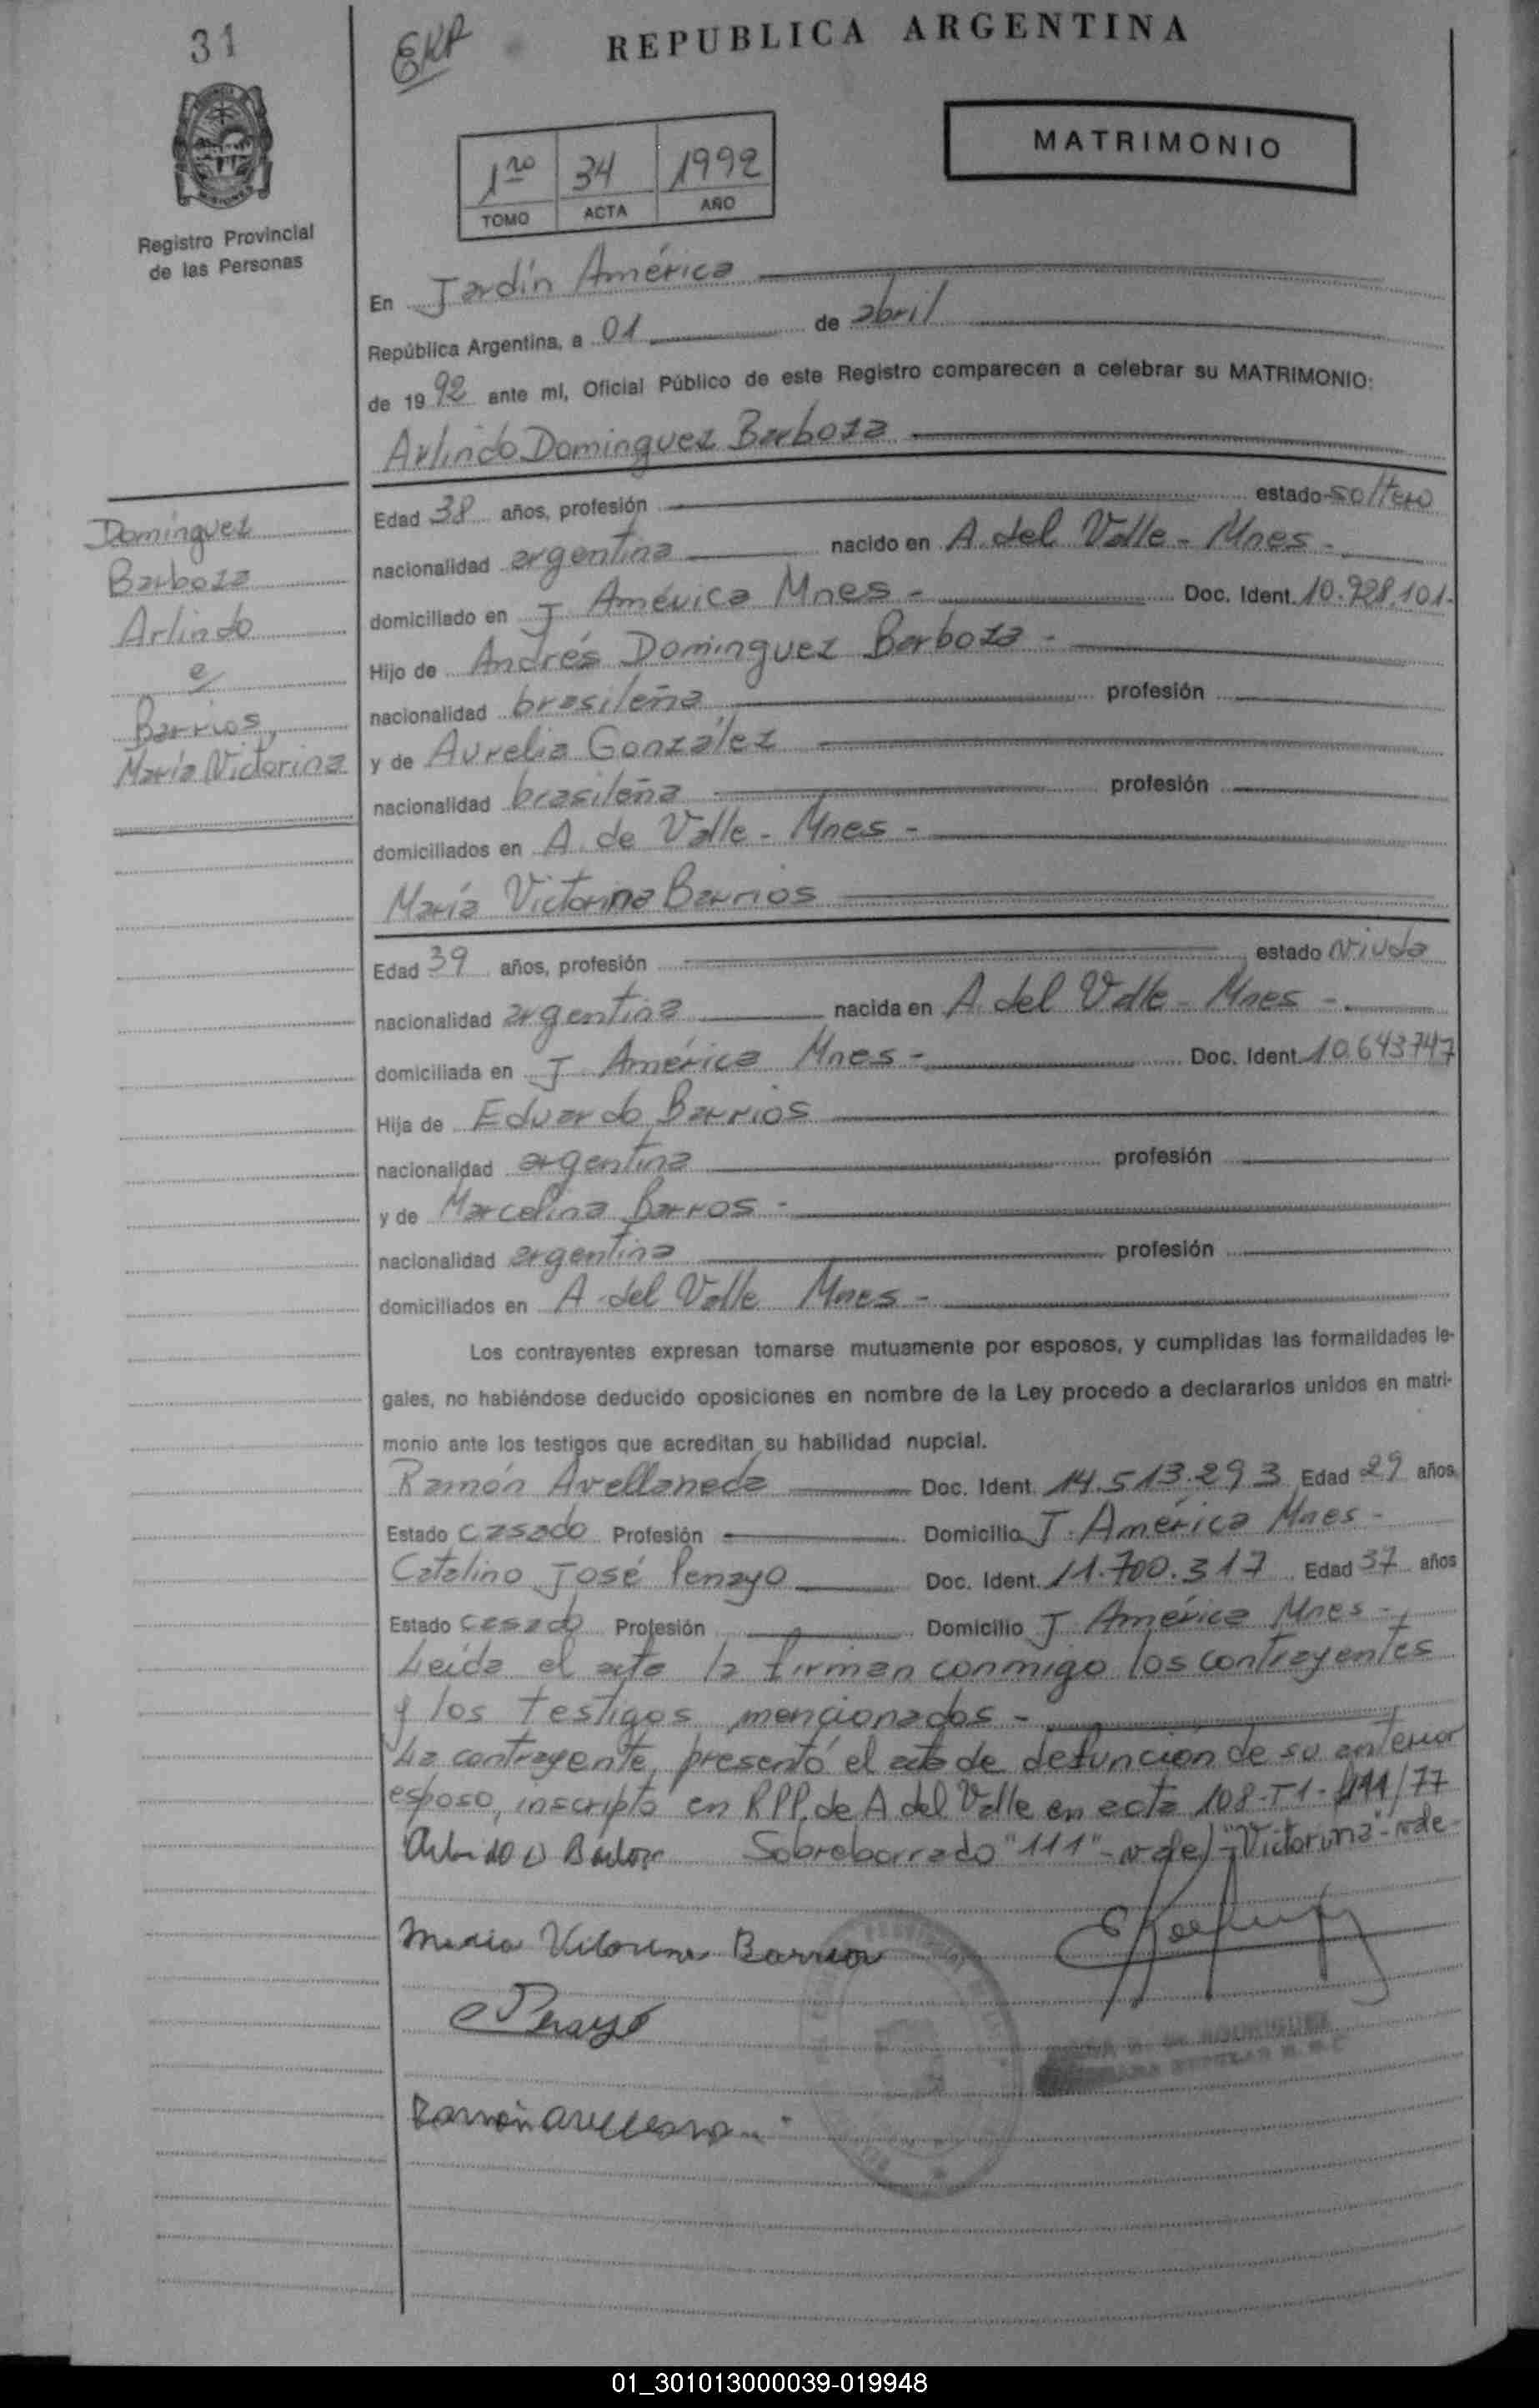 31
EKR
REPUBLICA ARGENTINA
MATRIMONIO
1ro 34 1992
TOMO ACTA AÑO
Registro Provincial
de las Personas
En Jardín América
República Argentina, a 01 de abril
de 1992 ante mí, Oficial Público de este Registro comparecen a celebrar su MATRIMONIO:
Arlindo Dominguez Barboza
Domínguez
Barboza
Arlindo
c/
Barrios,
María Victorina
Edad 38 años, profesión estado soltero
nacionalidad argentina nacido en A. del Valle - Mnes -
domiciliado en J. América Mnes - Doc. Ident. 10.928.101.
Hijo de Andrés Dominguez Barboza -
nacionalidad brasileña profesión
y de Aurelia González
nacionalidad brasileña profesión
domiciliados en A. de Valle - Mnes -
María Victorina Barrios
Edad 39 años, profesión estado viuda
nacionalidad argentina nacida en A. del Valle - Mnes -
domiciliada en J. América Mnes - Doc. Ident. 10.643747
Hija de Eduardo Barrios
nacionalidad argentina profesión
y de Marcelina Barros -
nacionalidad argentina profesión
domiciliados en A. del Valle Mnes -
Los contrayentes expresan tomarse mutuamente por esposos, y cumplidas las formalidades le-
gales, no habiéndose deducido oposiciones en nombre de la Ley procedo a declararlos unidos en matri-
monio ante los testigos que acreditan su habilidad nupcial.
Ramón Avellaneda Doc. Ident. 14.513.293 Edad 29 años,
Estado casado Profesión Domicilio J. América Mnes -
Catalino José Penayo Doc. Ident. 11.700.317 Edad 37 años
Estado casado Profesión Domicilio J. América Mnes -
Leída el acta la firman conmigo los contrayentes
y los testigos mencionados -
La contrayente, presentó el acta de defunción de su anterior
esposo, inscripto en RPP. de A del Valle en acta 108-T1-111/77
Sobreborrado "111" - vale) - "Victorina" - vale -
Maria Vitorina Barrios
Penayo
RODRIGUEZ
01_301013000039-019948